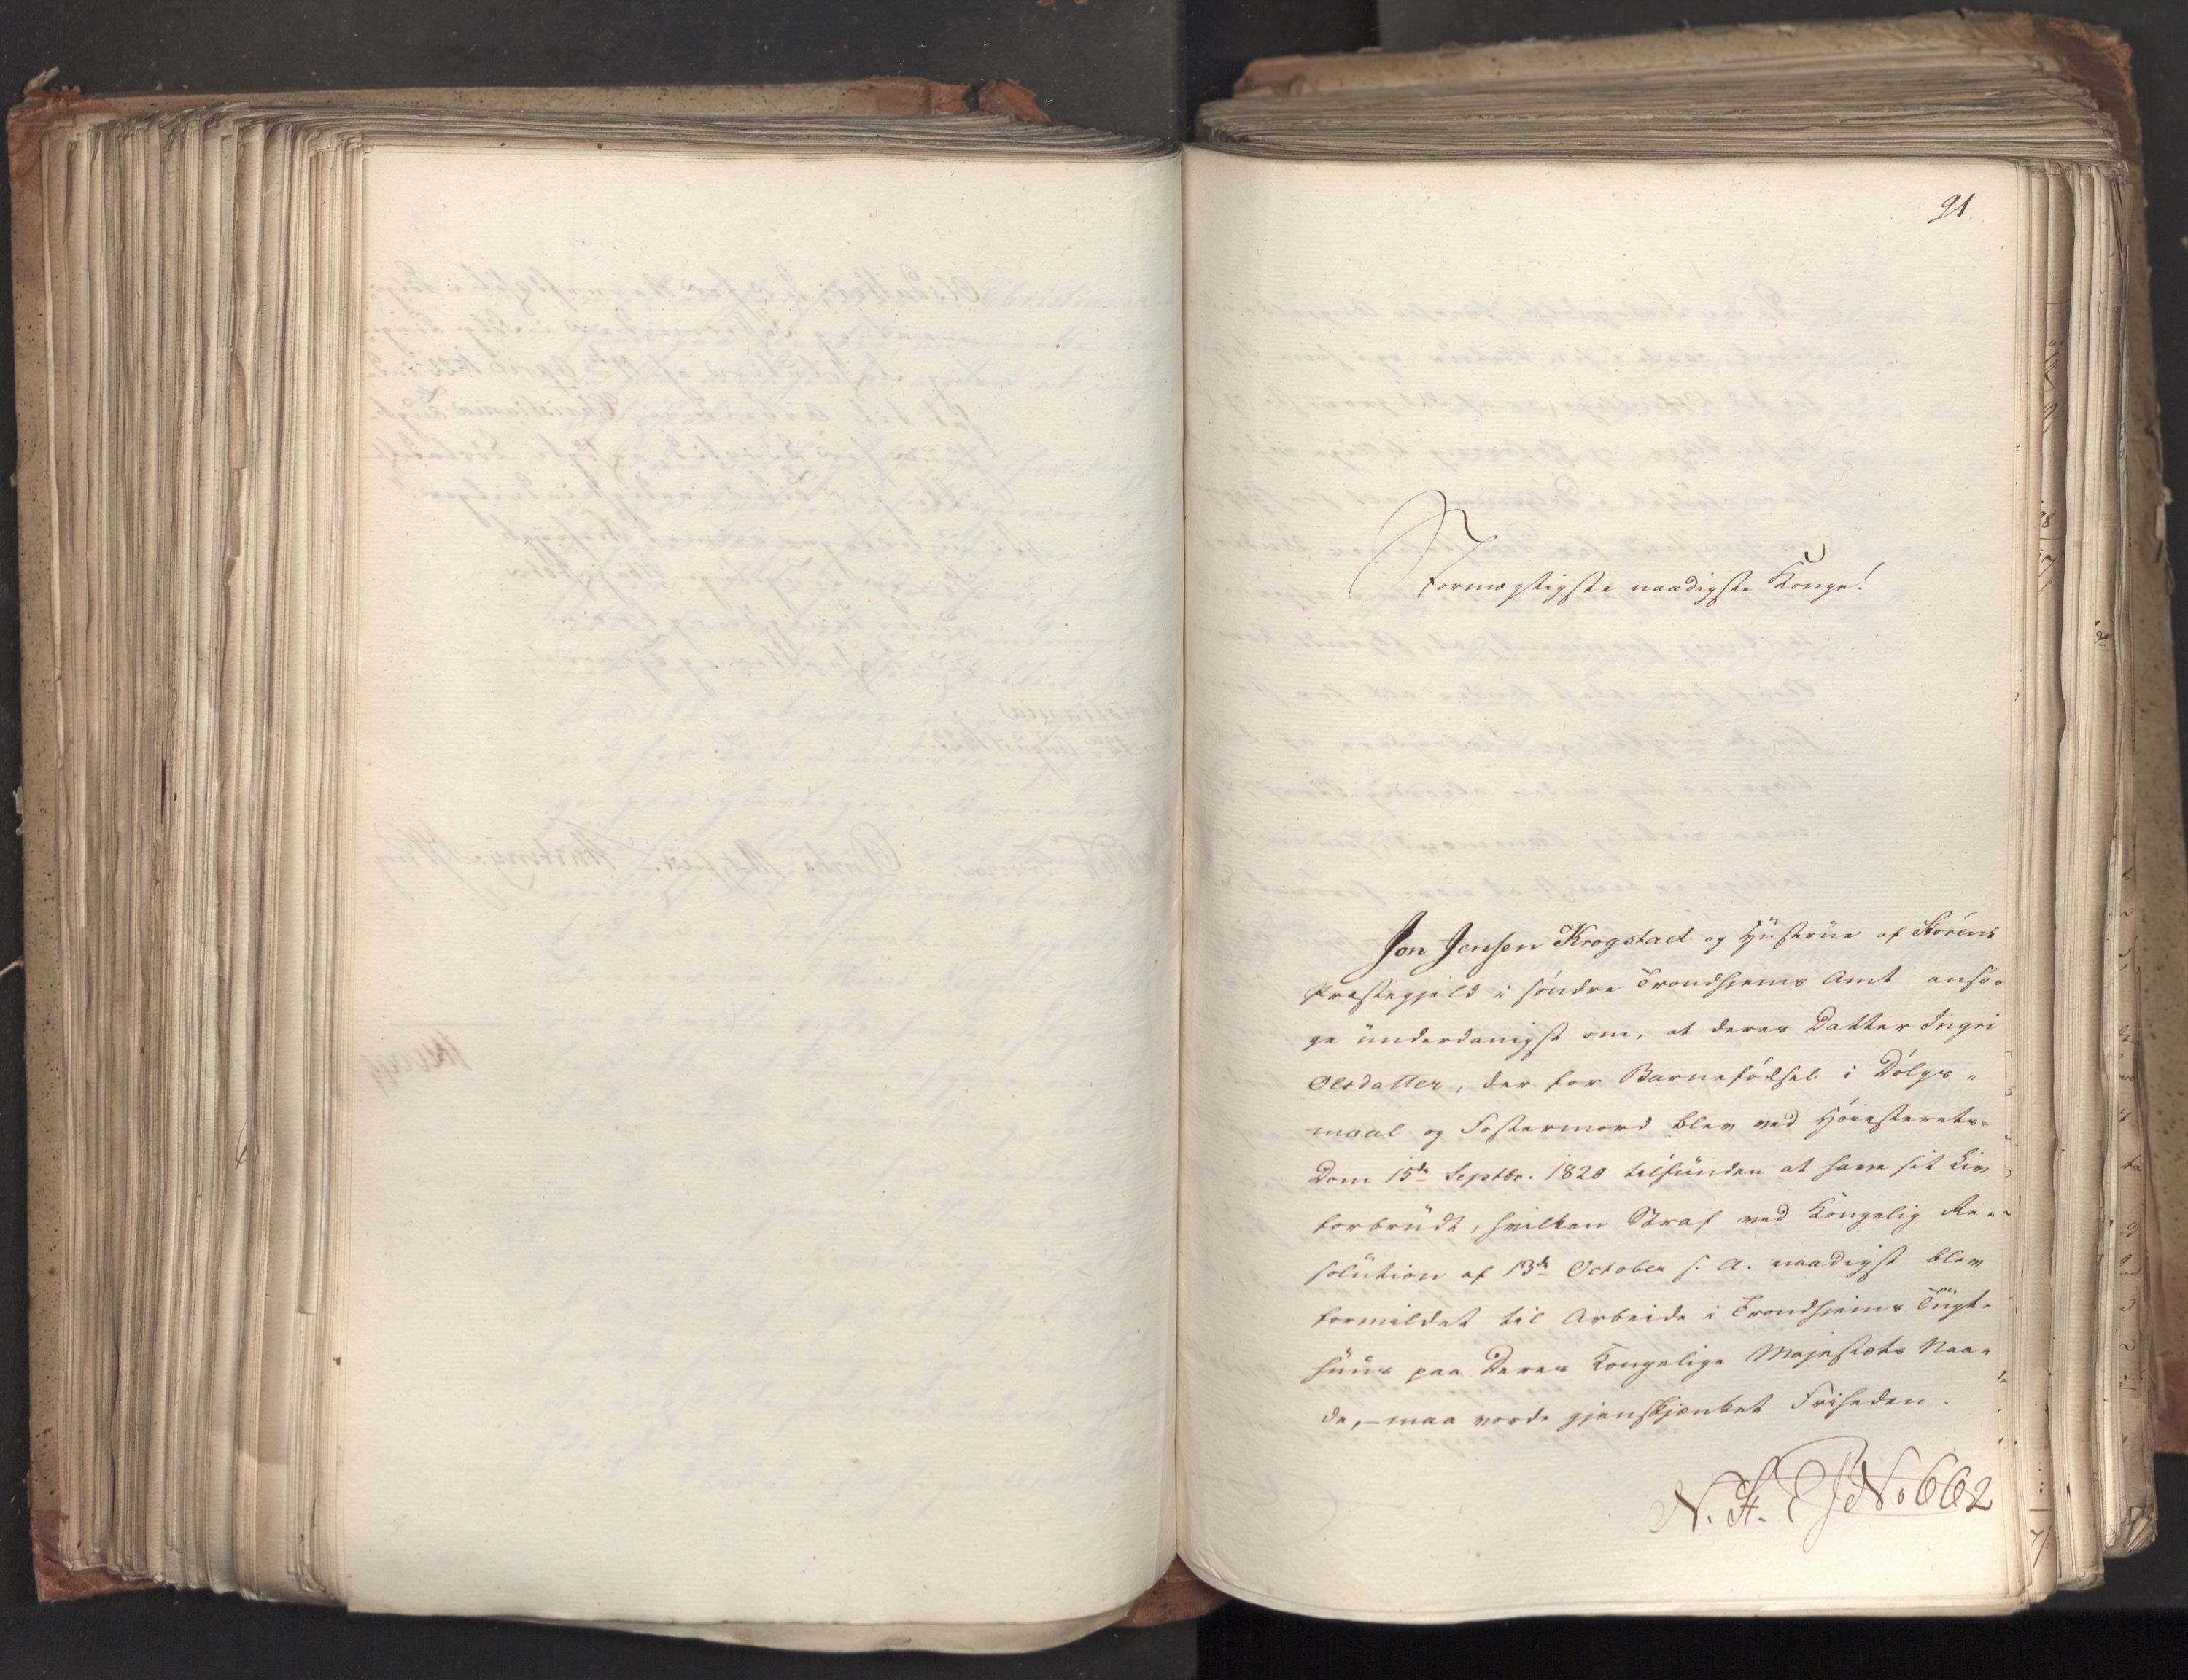 91.
Stormægtigste naadigste Konge!
Jon Jensen Krogstad og Hüstrüe af Störens
Præstegjeld i söndre Trondhjems Amt ansö-
ge ünderdanigst om, at deres Datter Ingri
Olsdatter, der for Barnefödsel i Dölgs-
maal og Fostermord blev ved Höiesterets-
Dom 15de Septbr. 1820 tilfünden at have sit Liv
forbrüdt, hvilken Straf ved Kongelig Re-
solütion af 13de October s. A. naadigst blev
formildet til Arbeide i Trondhjems Tügt-
hüüs paa Deres Kongelige Majestæts Naa-
de, – maa vorde gjenskjænket Friheden.
No 662